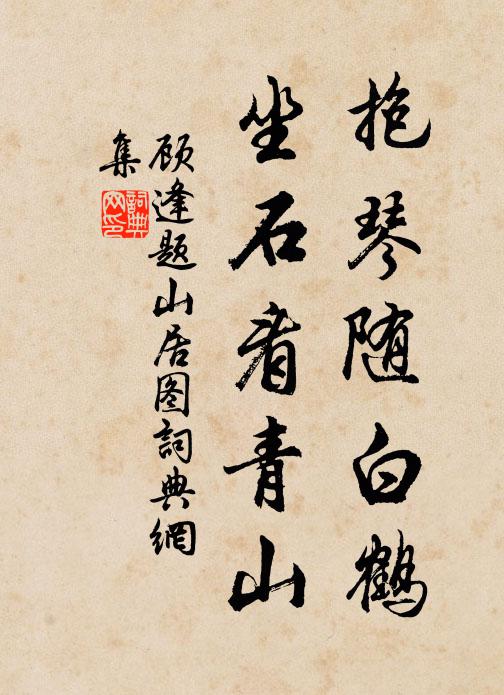 抱琴随白鶴
坐石看青山
顾逢题山居图詞典網
集
詞典
网印